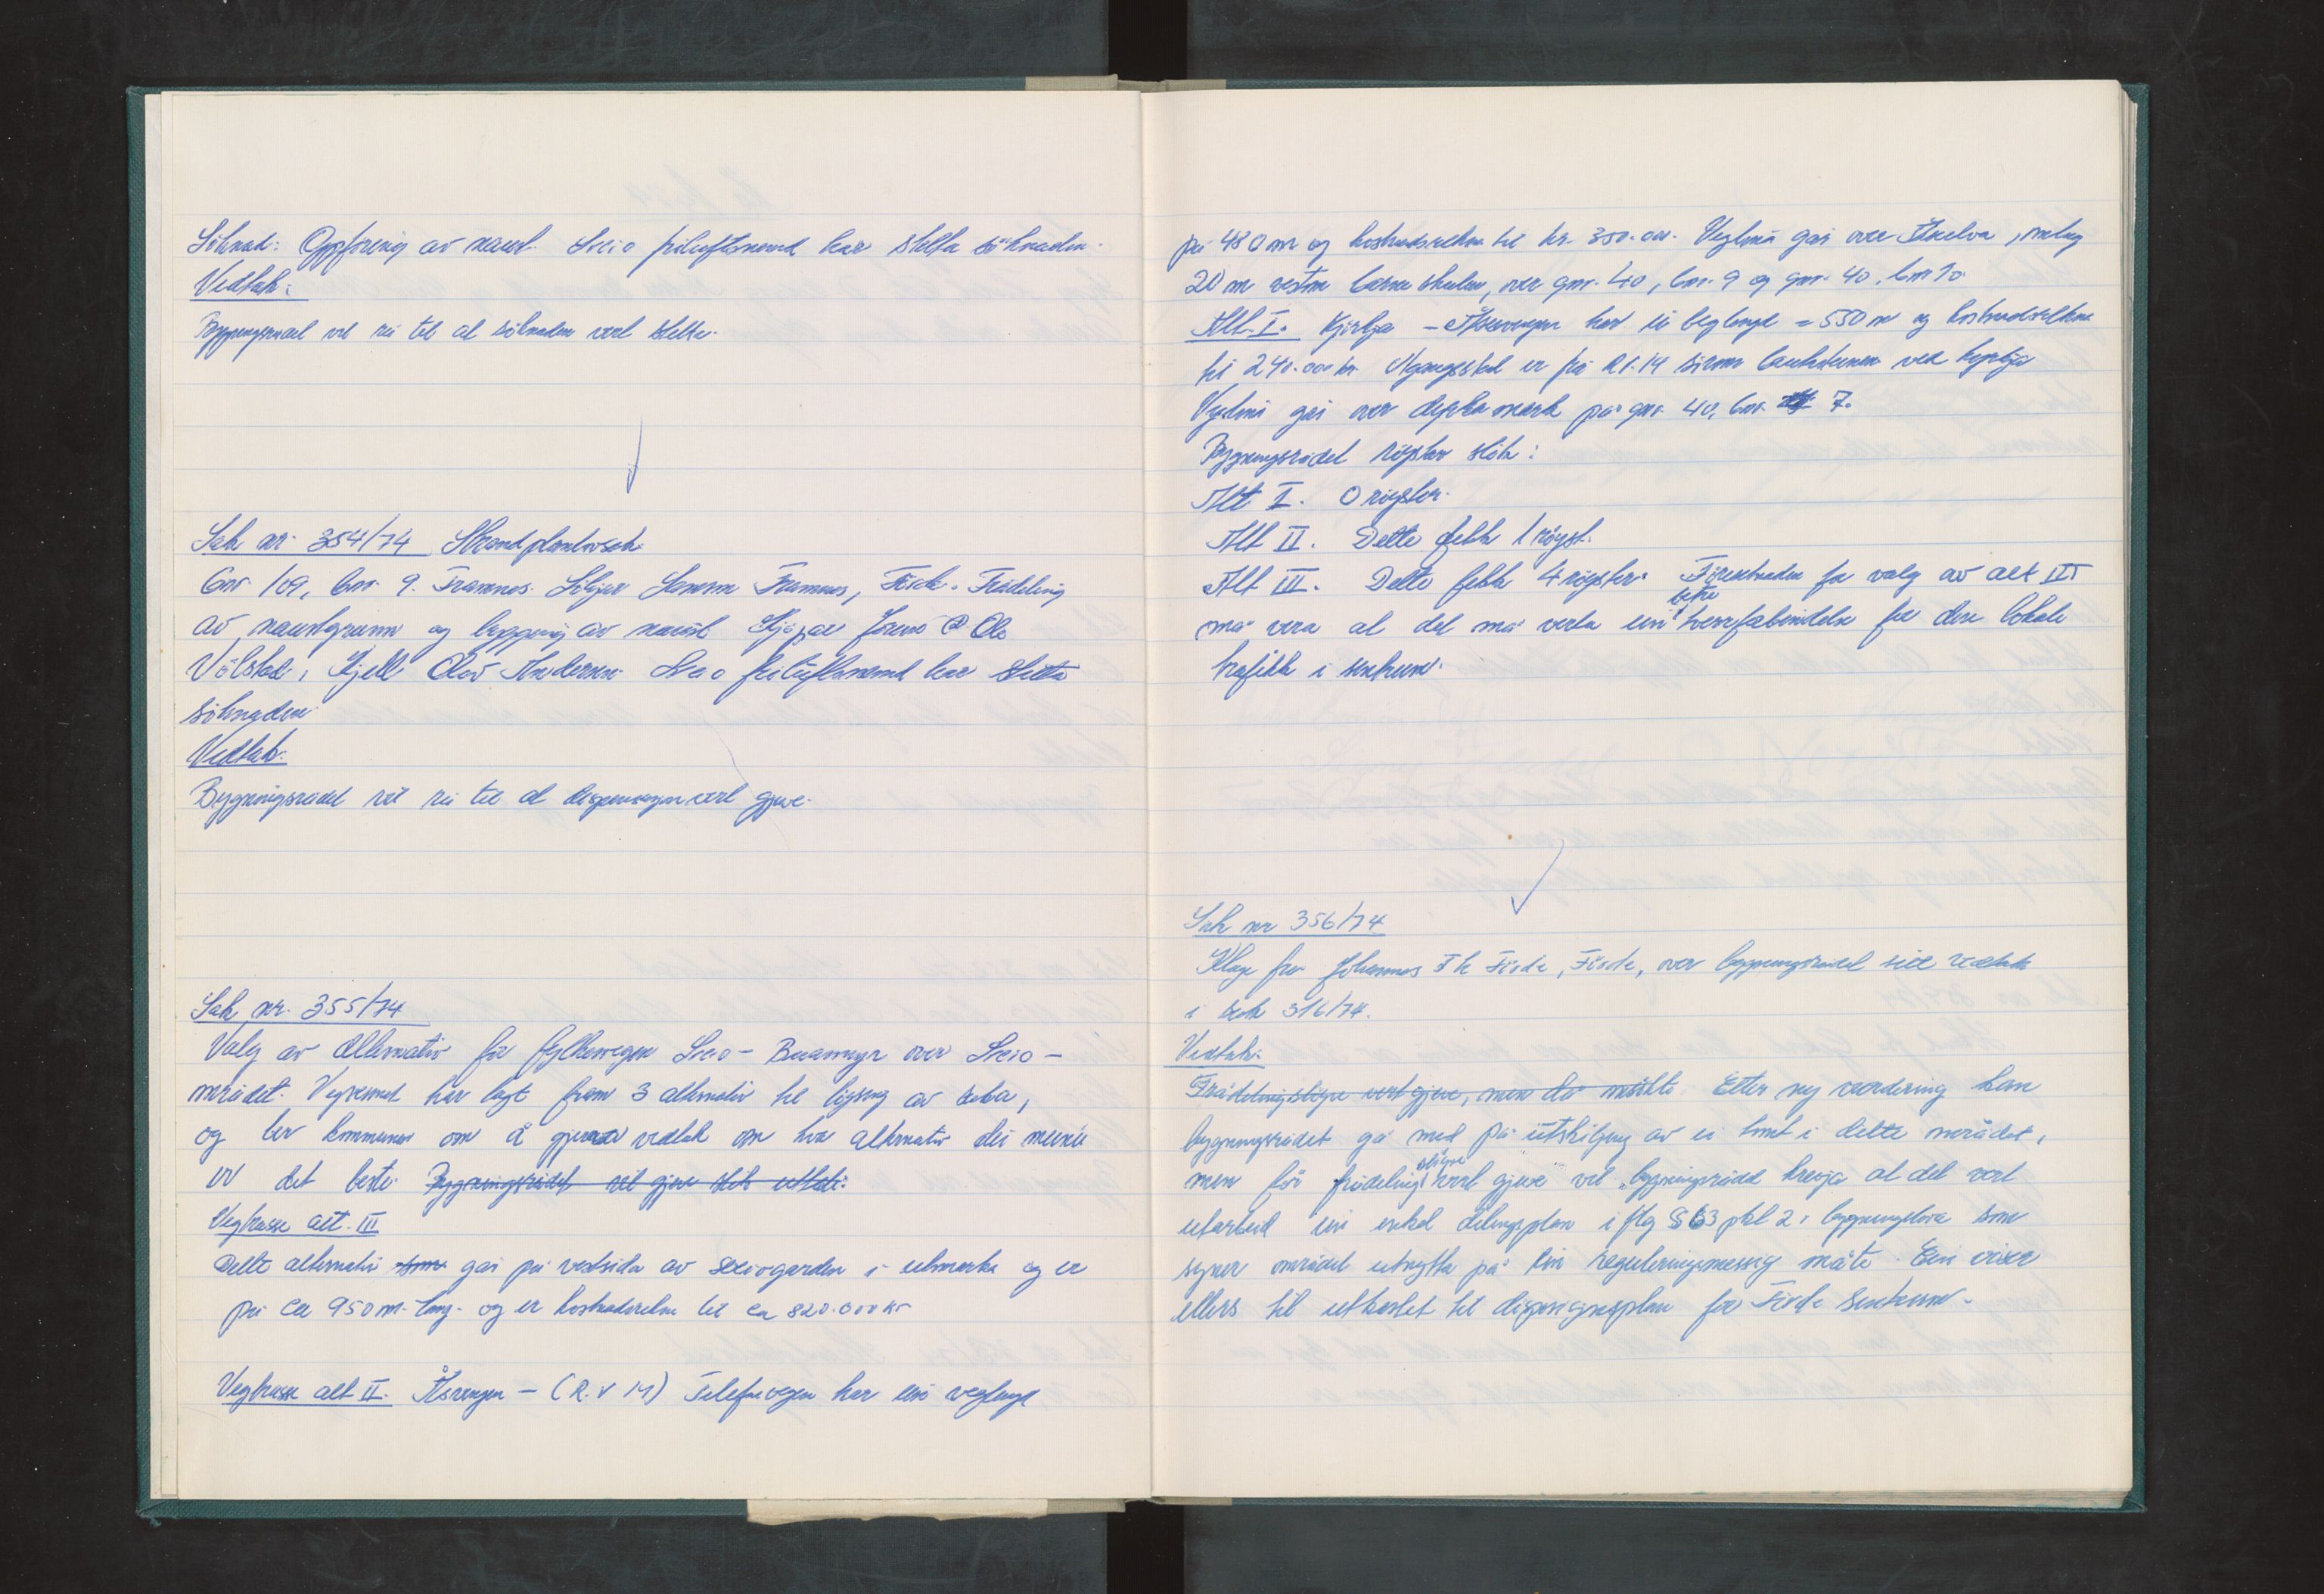 Söknad: Oppföring av naust. Sveio friluftsnemnd har støtta söknaden.
Vedtak:
Bygningsrådet vil rå til at söknaden vert støtta.
Sak nr. 354/74 Strandplanlovsak.
Gnr. 109, bnr. 9. Framnes. Framnes, Förde. Frådeling
av naustgrunn og bygging av naust. Kjöpar Ole
Kjell Olav Andersen. Sveio friluftsnemnd har støtta
söknaden.
Vedtak.
Bygningsrådet vil rå til at dispensasjon vert gjeve.
Sak nr. 355/74
Valg av alternativ for fylkesvegen Sveio – Buamyr over Sveio –
området. Vegvesenet har lagt fram 3 alternativ til löysing av saka,
og ber kommunen om å gjera vedtak om kva alternativ dei meinar
er det beste. Bygningsrådet vil gjeve slik uttale:
Vegtrasse alt. III
Dette alternativ som går på vestsida av Sveiogarden i utmarka og er
på ca 950 m. lang. og er kostnadsrekna til ca 820.000 kr
Vegtrasse alt II. Åsvegen – (R.V 14) Telefonvegen har ein veglengd
på 480 m og kostnadsrekna til kr. 350.000. Veglina går over
20 m vestom barneskulen, over gnr. 40, bnr. 9 og gnr. 40, bnr 10
Alt. I. Kyrkja – Åsvegen har ei veglengd = 550 m og kostnadsrekna
til 240.000 kr. Utgangsstad er frå RV. 14 ved kyrkja
Veglina går over dyrka mark på gnr. 40, bnr. 7.
Bygningsrådet röystar slik:
Alt I. 0 röyster.
Alt II. Dette fekk 1 röyst.
Alt III. Dette fekk 4 röyster. Föresetnaden for valg av alt III
må vera at det må verta ein betre tverrforbindelse for den lokale
trafikk i sentrum.
Sak nr 356/74
Klage fra Johannes Th Förde, Förde, over bygningsrådet sitt vedtak
i sak 316/74.
Vedtak:
Frådelingslöyve vert gjeve, men då må Etter ny vurdering kan
bygningsrådet gå med på utskiljing av ei tomt i dette området,
men för frådelingslöyve vert gjeve vil bygningsrådet krevja at det vert
utarbeid ein enkel delingsplan i flg § 63 pkt 2 i bygningslova som
syner området utnytta på ein reguleringsmessig måte. Ein viser
ellers til utkastet til disposisjonsplan for Förde sentrum.